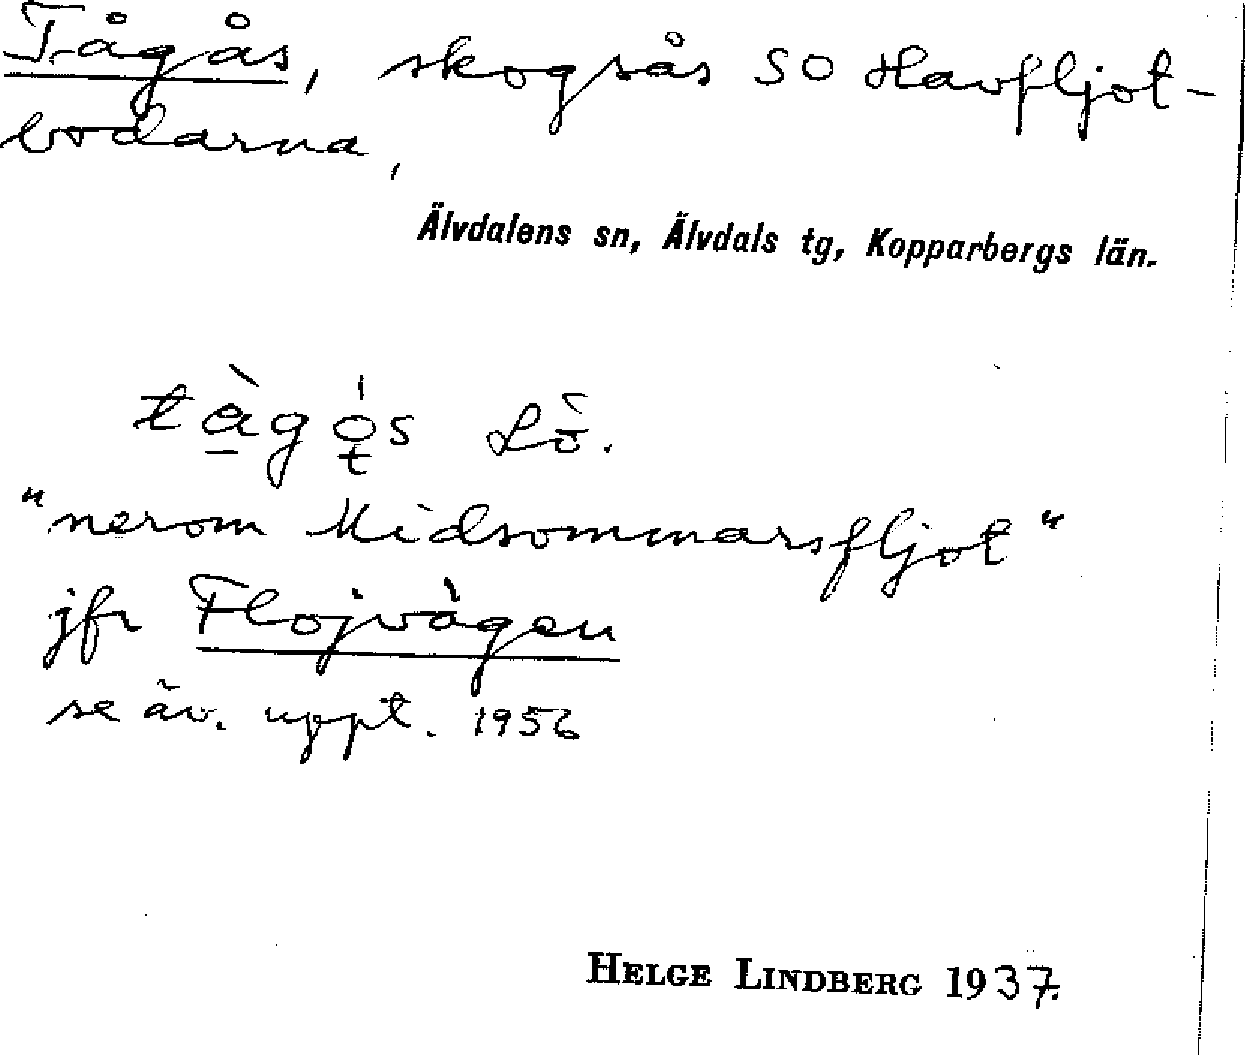 Tågås, skogsås SO Havfljot-
bodarna,
Älvdalens sn, Älvdals tg, Kopparbergs län.
tàgós Lö.
"nerom Midsommarsfljot"
jfr Flojvàgen
se äv. uppt. 1956
HELGE LINDBERG 1937.